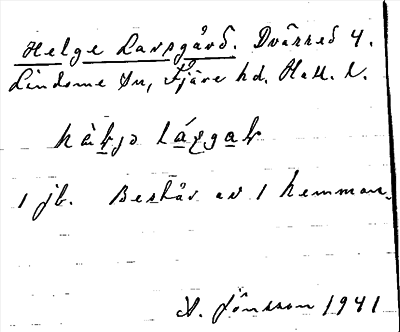 Helge Larsgård. Dvärred 4.
Lindome sn, Fjäre hd. Hall. l.
1 jb. Består av 1 hemman.
A. Jönsson 1941